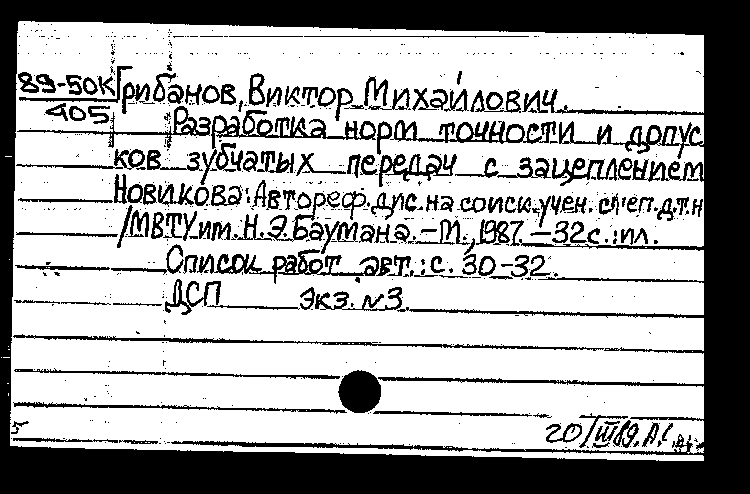 89-50К Грибанов, Виктор Михайлович.
405 Разработка норм точности и допус
ков зубчатых передач с зацеплением
Новикова: Автореф. дис. на соиск. учен. степ. д.т.н
/МВТУ им. Н.Э. Баумана. – М., 1987. – 32 с.: ил.
Список работ авт.: с. 30-32.
ДСП Экз. №3.
5
20/III 89.